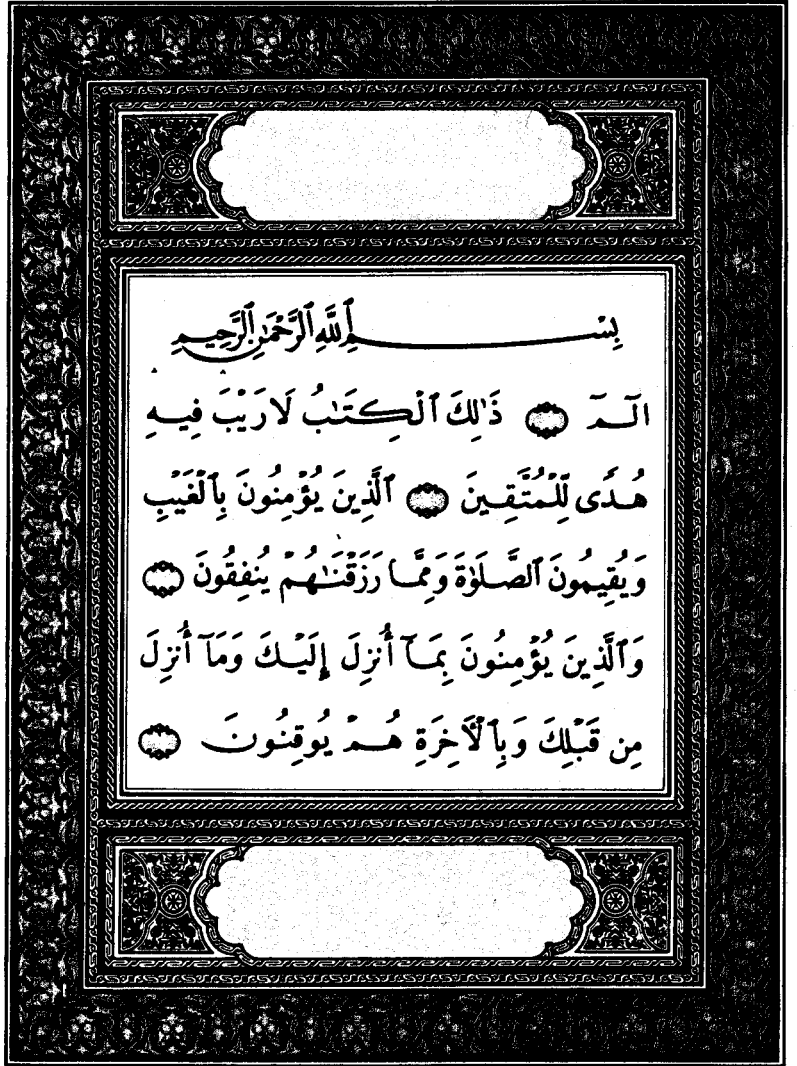 بِسْمِ ٱللَّهِ ٱلرَّحْمَٰنِ ٱلرَّحِيمِ
الٓمٓ ۝ ذَٰلِكَ ٱلْكِتَٰبُ لَا رَيْبَ فِيهِ
هُدًى لِّلْمُتَّقِينَ ۝ ٱلَّذِينَ يُؤْمِنُونَ بِٱلْغَيْبِ
وَيُقِيمُونَ ٱلصَّلَوٰةَ وَمِمَّا رَزَقْنَٰهُمْ يُنفِقُونَ ۝
وَٱلَّذِينَ يُؤْمِنُونَ بِمَآ أُنزِلَ إِلَيْكَ وَمَآ أُنزِلَ
مِن قَبْلِكَ وَبِٱلْأَخِرَةِ هُمْ يُوقِنُونَ ۝